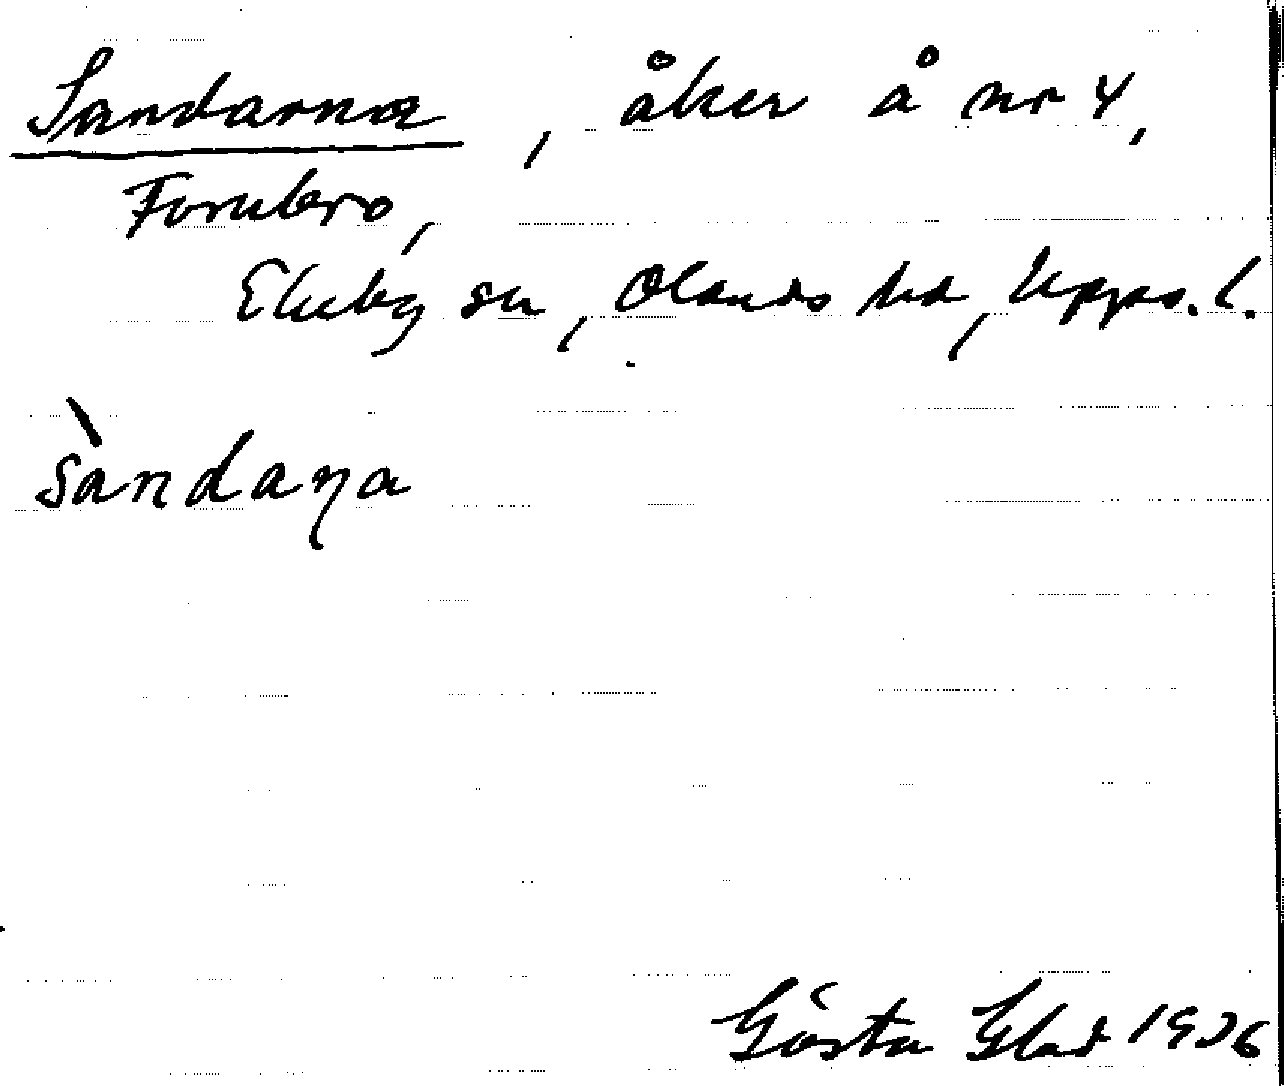 Sandarna, åker å nr 4,
Fornbro,
Ekeby sn, Olands hd, Upps. l.
sàndaṇa
Gösta Glad 1926